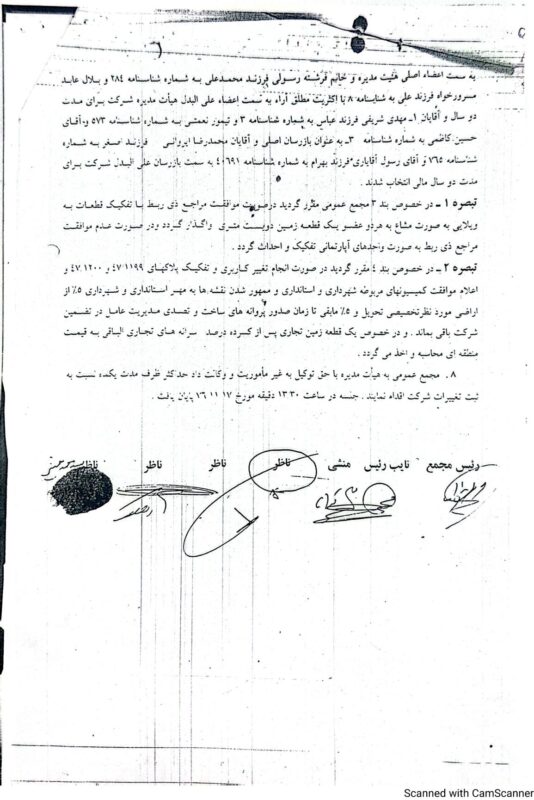 به سمت اعضاء اصلی هئیت مدیره و خانم فرشته رسولی فرزند محمدعلی به شماره شناسنامه ۲۸۴ و بلال عابد
سرورخواه فرزند علی به شناسنامه ۸ با اکثریت مطلق آراء به سمت اعضاء علی البدل هیأت مدیره شرکت برای مدت
دو سال و آقایان ۱ـ مهدی شریفی فرزند عباس به شماره شناسنامه ۳ و تیمور نعمتی به شماره شناسنامه ۵۷۳ و۰آقای
حسین کاظمی به شماره شناسنامه ۳ـ به عنوان بازرسان اصلی و آقایان محمدرضا ایروانی فرزند اصغر به شماره
شناسنامه ۷۶۵ و آقای رسول آقاباری فرزند بهرام به شماره شناسنامه ۴۰۶۹۱ به سمت بازرسان علی البدل شرکت برای
مدت دو سال مالی انتخاب شدند .
تبصره ۱ ـ در خصوص بند ۳ مجمع عمومی مقرر گردید درصورت موافقت مراجع ذی ربط با تفکیک قطعات به
ویلایی به صورت مشاع به هردو عضو یک قطعه زمین دویست متری واگذار گردد ودر صورت عدم موافقت
مراجع ذی ربط به صورت واحدهای آپارتمانی تفکیک و احداث گردد .
تبصره ۲ ـ در خصوص بند ٤ مقرر گردید در صورت انجام تغییر کاربری و تفکیک پلاکهای ۴۷٫۱۱۹۹ و ۴۷٫۱۲۰۰ و
اعلام موافقت کمیسیونهای مربوطه شهرداری و استانداری و ممهور شدن نقشه ها به مهر استانداری و شهرداری ۵٪ از
اراضی مورد نظرتخصیصی تحویل و ۵٪ مابقی تا زمان صدور پروانه های ساخت و تصدی مدیریت عامل در تضمین
شرکت باقی بماند . و در خصوص یک قطعه زمین تجاری پس از کسر ده درصد سرانه های تجاری الباقی به قیمت
منطقه ای محاسبه و اخذ می گردد .
۸ . مجمع عمومی به هیأت مدیره با حق توکیل به غیر مأموریت و وکالت داد حداکثر ظرف مدت یکماه نسبت به
ثبت تغییرات شرکت اقدام نمایند . جلسه در ساعت ۱۳:۳۰ دقیقه مورخ ۷۶٫۱۱٫۱۷ پایان یافت .
رئیس مجمع نایب رئیس منشی ناظر ناظر ناظر ناظر
Scanned with CamScanner